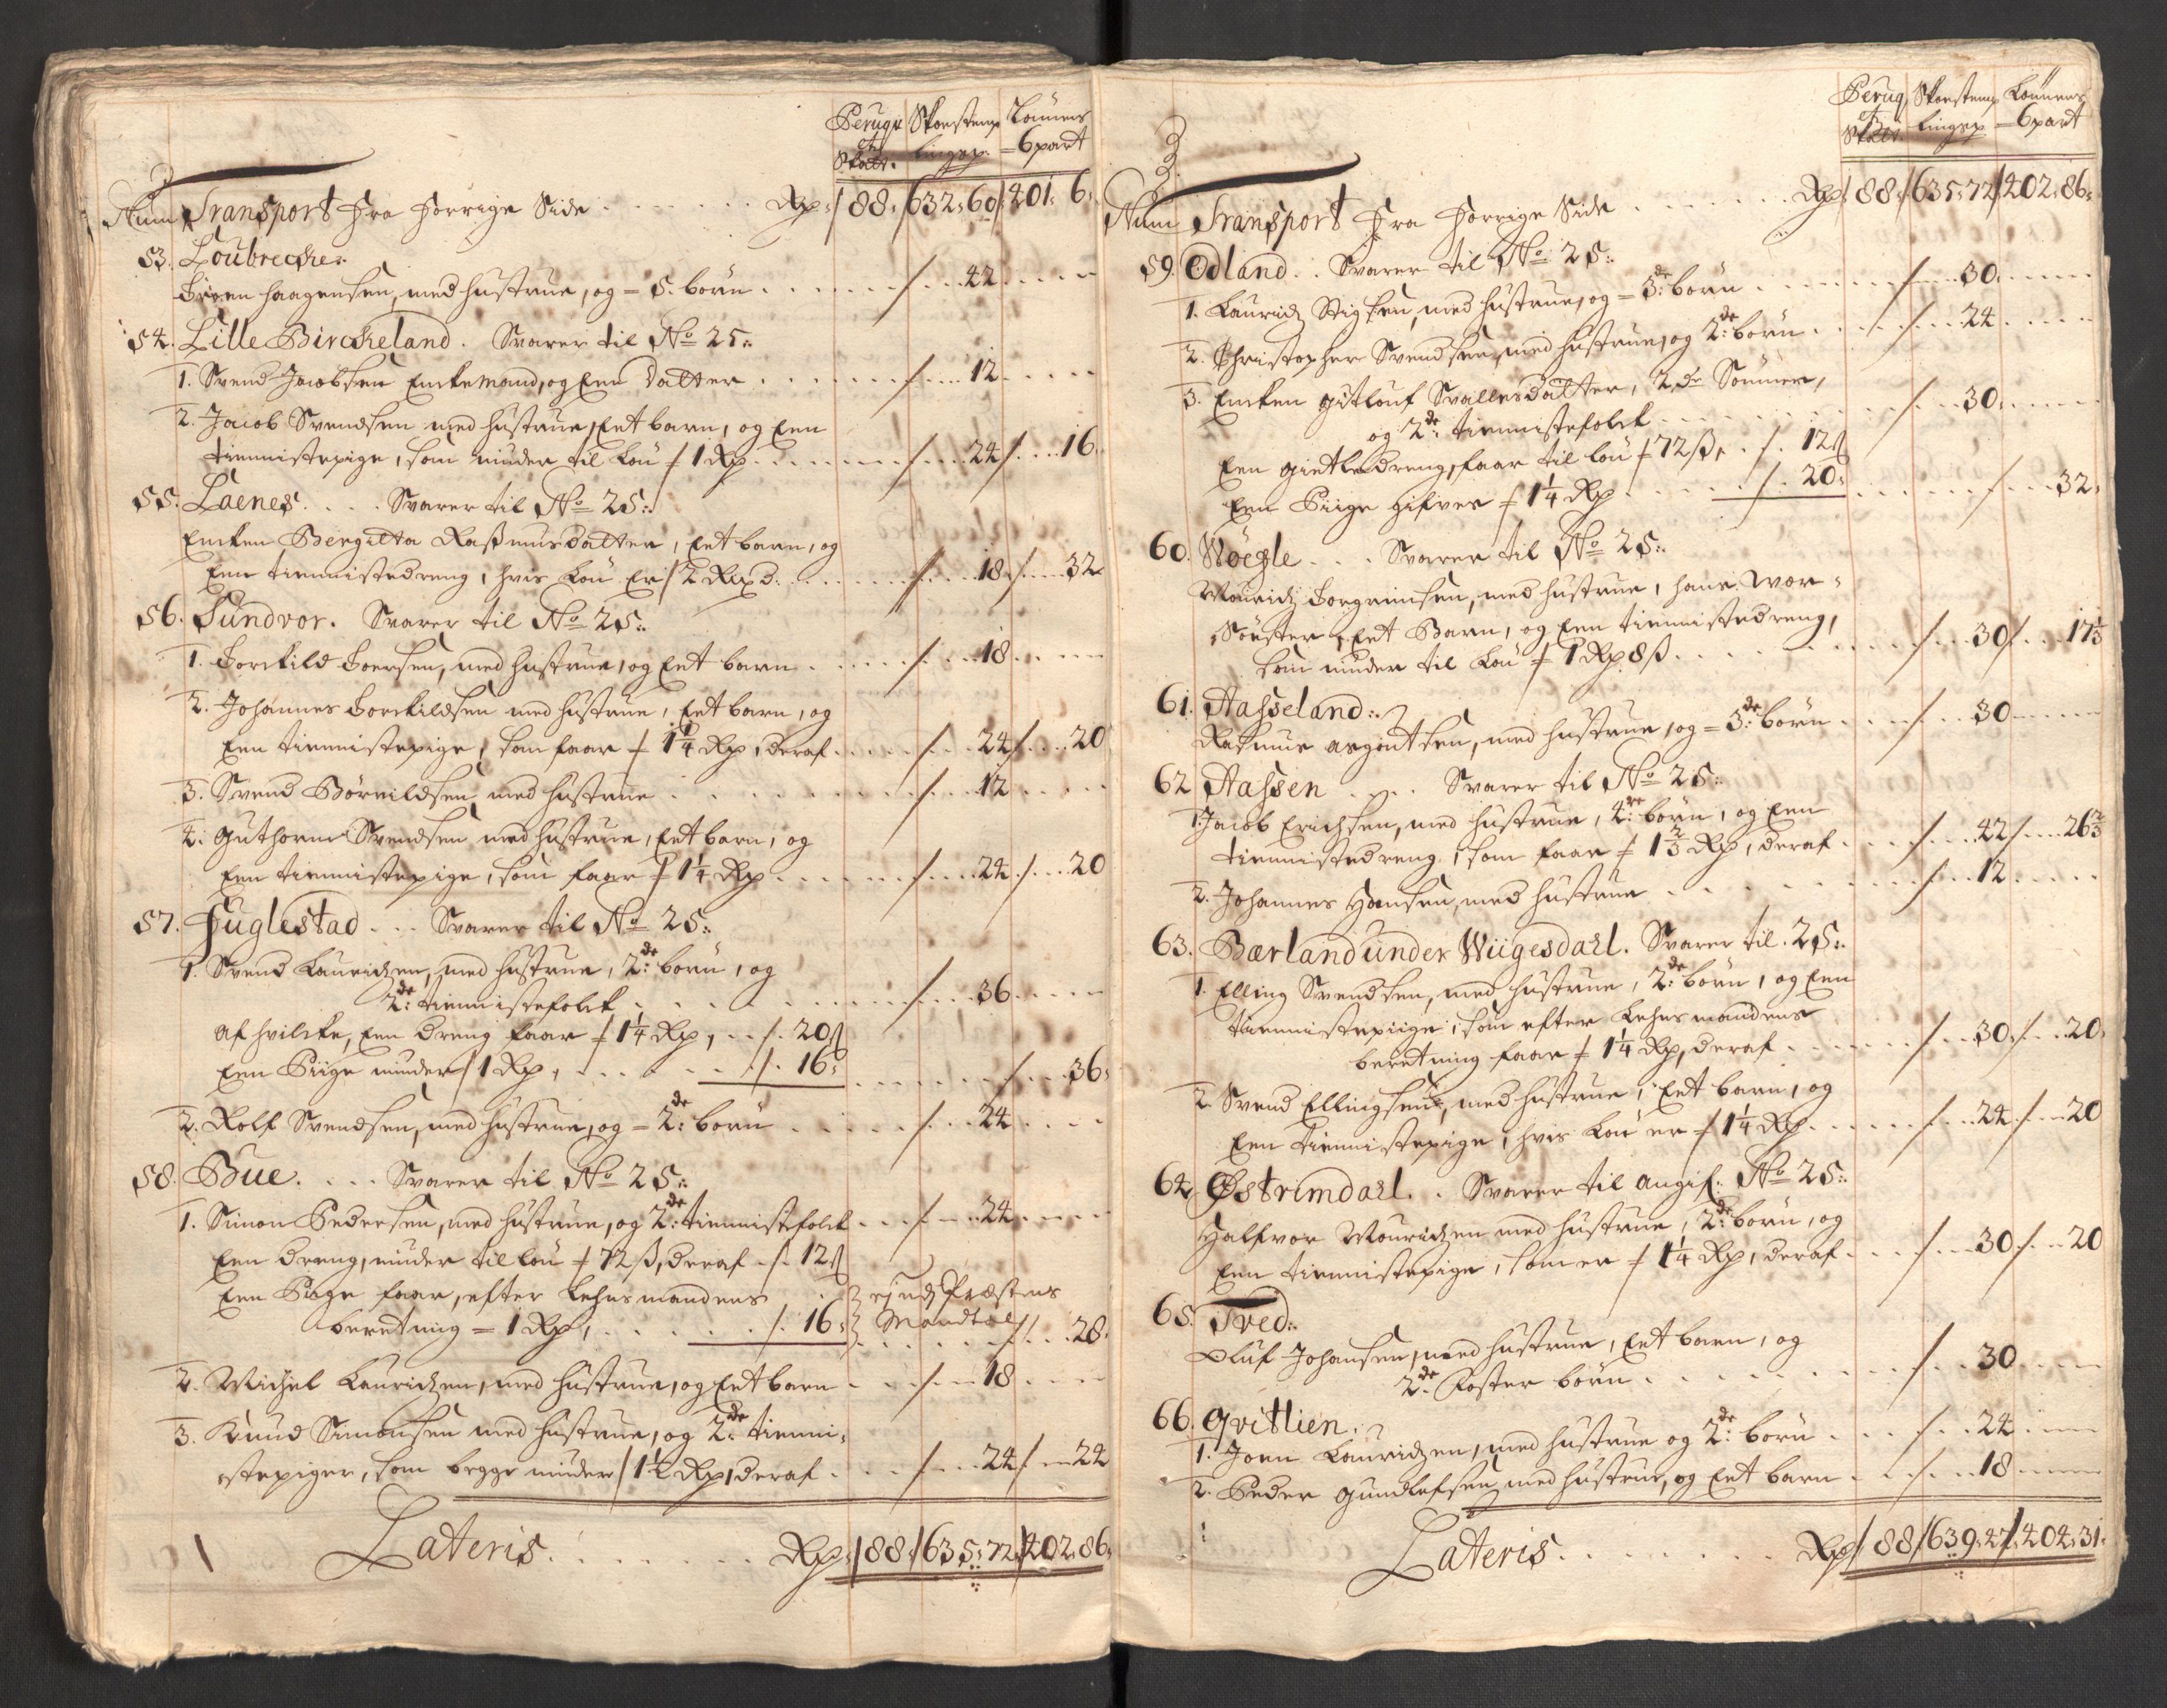 Perugr Skorstens Lönnens
et
Skatt. Lingep. = 6 part
Num Transport Fra Forrige Side . . . . . . Rp: / 88: / 632: 60 / 401: 6:
53. Loubrecke:
Broen Haagensen, med hustrue, og = 5. børn . . . . . / . . 42 . . . .
54. Lille Birckeland. Svarer til No 25:
1. Svend Jacobsen Enckemand, og Een datter . . . . . / . . . 12 . . . .
2. Jacob Svendsen med hustrue, Eet barn, og Een
tiennistepige, som nÿder til Løn / 1 Rp . . . . . . / . . 24 / . . 16.
55. Laenes. . . . Svarer til No 25:
Encken Bergitta Rasmusdatter, Eet barn, og
Een tiennistedreng, hvis Løn Er / 2 Rixd. . . . . / . . 18. / . . . 32
56. Sundvor. Svarer til No 25:
1. Torckild Toersen, med hustrue, og Eet barn . . . . / . . 18 . . . .
2. Johannes Torckildsen med hustrue, Eet barn, og
Een tiennistepige, som faar / 1¼ Rp, deraf . . . . / . . 24 / . . 20
3. Svend Børrildsen med hustrue . . . . . . / . . 12 . . . .
4. Guthorm Svendsen med hustrue, Eet barn, og
Een tiennistepige, som faar / 1¼ Rp . . . . . / . . 24 / . . 20
57. Fuglestad . . . Svarer til No 25:
1. Svend Lauridzen, med hustrue, 2de børn, og
2de tiennistefolck . . . . . . . / . . . 36 . . . .
af hvilcke, Een dreng faar / 1¼ Rp, . . / . 20 ß
Een Piige nÿder / 1 Rp, . . . . . / . 16: . . . . . / . . . 36:
2. Rolf Svendsen, med hustrue, og = 2de børn . . . . . / . . 24 . . . .
58. Bue. . . . Svarer til No 25:
1. Simon Pedersen, med hustrue, og 2de tiennistefolck . . . / . . . 24 . . . .
Een dreng, nÿder til løn / 72 ß, deraf . / . 12 ß
Een Pige faar, efter Lehnsmandens
beretning = 1 Rp, . . . . . . / . 16: Præstens Mandtal . . . / . . . 28.
2. Michel Lauridzen, med hustrue, og Eet barn . . . / . . . 18 . . . .
3. Knud Simonsen med hustrue, og 2de tienni,
stepiger, som begge nÿder / 1½ Rp, deraf . . . / . . . 24 / . . . 24
Lateris. . . . . . . . Rp: / 88: / 635: 72 / 402: 86:
Perug. Skorstens Lönnens
et
Skatt. Lingep = 6 part
Num Transport Fra Forrige Side . . . . . . Rp / 88: / 635: 72 / 402: 86:
59. Odland . . Svarer til No 25:
1. Lauridz Stigsen, med hustrue, og = 3de børn . . . . . / . . . 30. . . . .
2. Christopher Svendsen, med hustrue, og 2de børn . . . . / . . . 24 . . . .
3. Encken Gitlouf Svallesdatter, 2de Sønner,
og 2de tiennistefolck . . . . . . . / . . . 30. . . . .
Een gietledreng, faar til løn / 72 ß, . . / . 12 ß
Een Piige gifves / 1¼ Rp . . . . . / . 20: . . . . . / . . . 32:
60. Vøegle . . . Svarer til No 25:
Mouridz Torgrimsen, med hustrue, hans Mor =
Søster, Eet Barn, og Een tiennistedreng,
som nÿder til Løn / 1 Rp 8 ß . . . . . . / . . . 30 / . . . 17⅓
61. Aasseland:
Rasmus Asgoutsen, med hustrue, og = 3de børn . . . . / . . . 30 . . . .
62 Aassen . . . . Svarer til No 25:
1. Jacob Erichsen, med hustrue, 4re børn, og Een
tiennistedreng, som faar / 1⅔ Rp, deraf . . . . / . . . 42 / . . . 26⅔
2. Johannes Hansen, med hustrue . . . . . . / . . . 12 . . . .
63. Bærland under Wiigesdahl. Svarer til. 25:
1. Elling Svendsen, med hustrue, 2de børn, og Een
tiennistepiige, som efter Lehnsmandens
beretning faar / 1¼ Rp, deraf . . . . . / . . . 30. / . . . 20:
2. Svend Ellingsen, med hustrue, Eet barn, og
Een tiennistepige, hvis Løn er / 1¼ Rp. . . . . / . . . 24. / . . . 20
64 Østrimdahl. . Svarer til angif: No 25:
Halfvor Mouridzen med hustrue, 2de børn, og
Een tiennistepige, som er / 1¼ Rp, deraf . . . . / . . . 30. / . . . 20
65. Tved:
Oluf Johansen, med hustrue, Eet barn, og
2de Foster børn . . . . . . . / . . . 30 . . . .
66. Qvitlien:
1. Joen Lauridzen, med hustrue og 2de børn . . . / . . . 24 . . . .
2. Peder Gundlefsen med hustrue, og Eet barn . . . / . . . 18 . . . .
Lateris . . . . . . . Rp / 88 / 639: 27 / 404: 31: